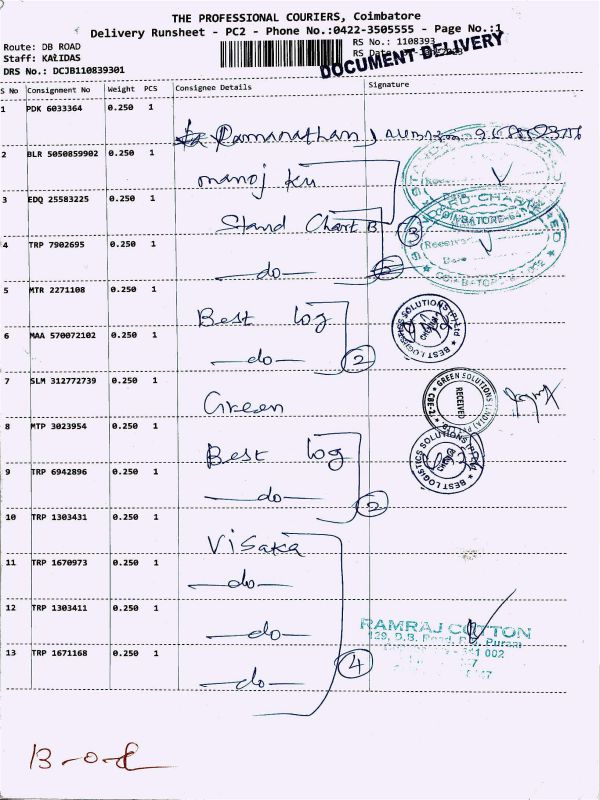 THE PROFESSIONAL COURIERS, Coimbatore
Delivery Runsheet - PC2 - Phone No.:0422-3505555 - Page No.:1
Route: DB ROAD
RS No.: 1108393
Staff: KALIDAS
RS Date
DOCUMENT DELIVERY
DRS No.: DCJB110839301
S No Consignment No Weight PCS Consignee Details Signature
1 PDK 6033364 0.250 1
Ramanathan
2 BLR 5050859902 0.250 1
manoj ku
3 EDQ 25583225 0.250 1
Stand Chart B
3
4 TRP 7902695 0.250 1
—do—
(Received
COIMBATORE
5 MTR 2271108 0.250 1
Best log
BEST LOGISTICS SOLUTIONS (P) Ltd
6 MAA 570072102 0.250 1
—do— 2
7 SLM 312772739 0.250 1
Green
GREEN SOLUTIONS
RECEIVED
8 MTP 3023954 0.250 1
Best log
BEST LOGISTICS SOLUTIONS
9 TRP 6942896 0.250 1
—do— 2
10 TRP 1303431 0.250 1
Visaka
11 TRP 1670973 0.250 1
—do—
12 TRP 1303411 0.250 1
—do—
RAMRAJ COTTON
129, D.B. Road, R.S. Puram
13 TRP 1671168 0.250 1
—do— 4